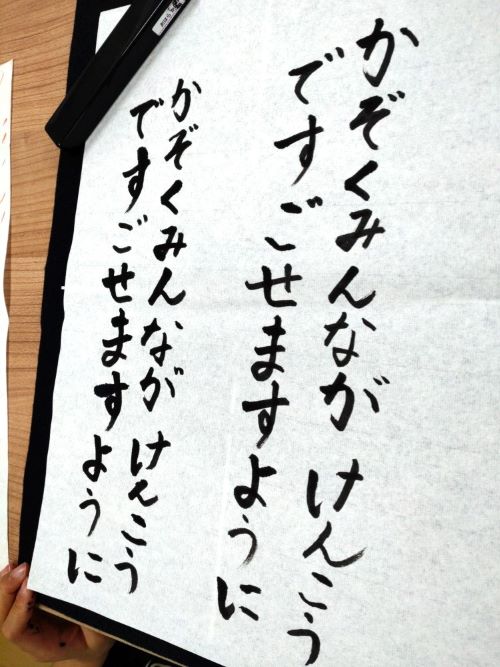 かぞくみんなが けんこう
ですごせますように
かぞくみんなが けんこう
ですごせますように